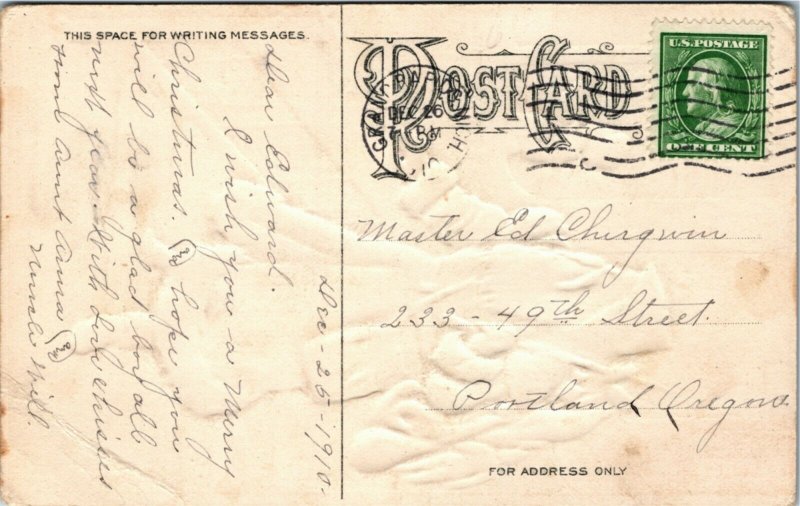 THIS SPACE FOR WRITING MESSAGES.
Dec-25-1910-
Dear Edward.
I wish you a Merry
Christmas. & hope you
will be a glad boy all
next year. With love & kisses
from Aunt Anna &
Uncle Will.
POST CARD
GRAND RAPIDS
DEC 26
MICH
U.S. POSTAGE
ONE CENT
Master Ed Chirgwin
233-49th Street.
Portland Oregon.
FOR ADDRESS ONLY